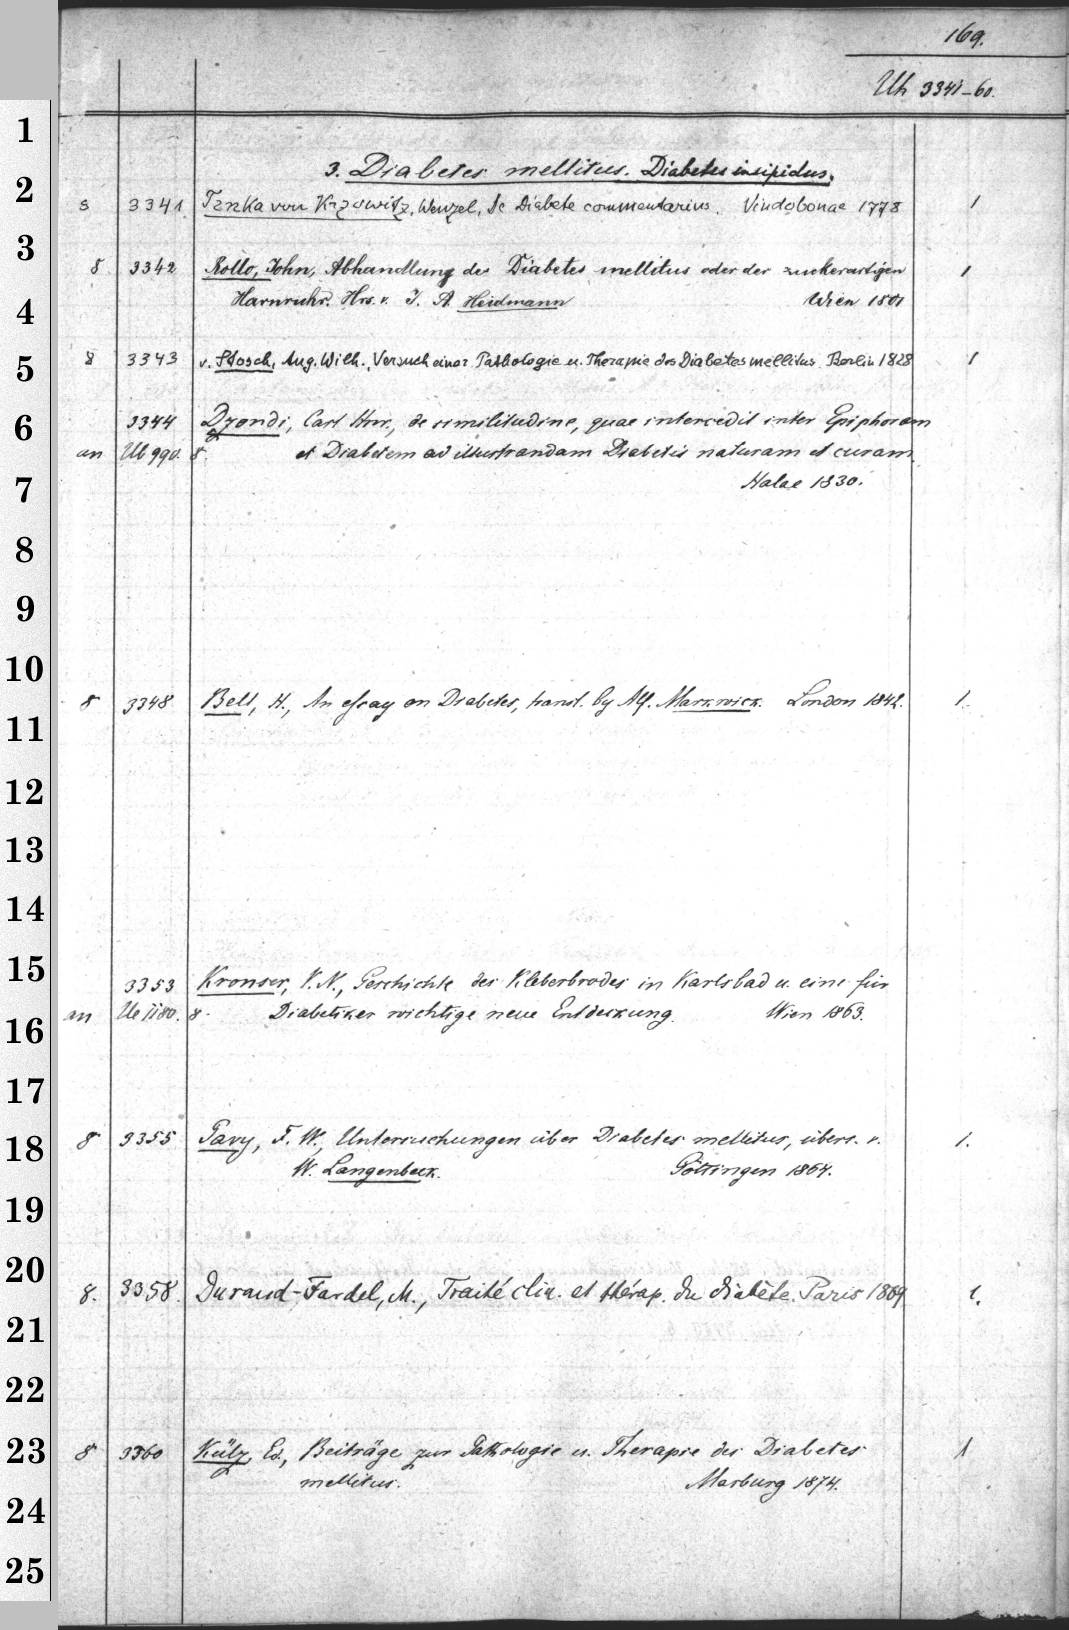 169.
Uh 3341-60.
3. Diabetes mellitus. Diabetes insipidus.
8 3341 Trnka von Krzowitz, Wenzel, de Diabete commentarius. Vindobonae 1778 1
8 3342 Rollo, John, Abhandlung des Diabetes mellitus oder der zuckerartigen 1
Harnruhr. Hrs. v. J. A. Heidmann Wien 1801
8 3343 v. Stosch, Aug. Wilh., Versuch einer Pathologie u. Therapie des Diabetes mellitus. Berlin 1828 1
3344 Dzondi, Carl Hnr., de similitudine, quae intercedit inter Epiphoram
an Ub 990. 8. et Diabetem ad illustrandam Diabetis naturam et curam.
Halae 1830.
8 3348 Bell, H., An essay on Diabetes, transl. by Alf. Markwick. London 1842. 1.
3353 Kronser, V. N., Geschichte des Kleberbrodes in Karlsbad u. eine für
an Ue 1180. 8. Diabetiker wichtige neue Entdeckung. Wien 1863.
8 3355 Pavy, F. W., Untersuchungen über Diabetes mellitus, übers. v. 1.
W. Langenbeck. Göttingen 1864.
8. 3358. Durand-Fardel, M., Traité clin. et thérap. du diabète. Paris 1869 1.
8 3360 Külz, Ed., Beiträge zur Pathologie u. Therapie des Diabetes 1
mellitus. Marburg 1874.
1
2
3
4
5
6
7
8
9
10
11
12
13
14
15
16
17
18
19
20
21
22
23
24
25